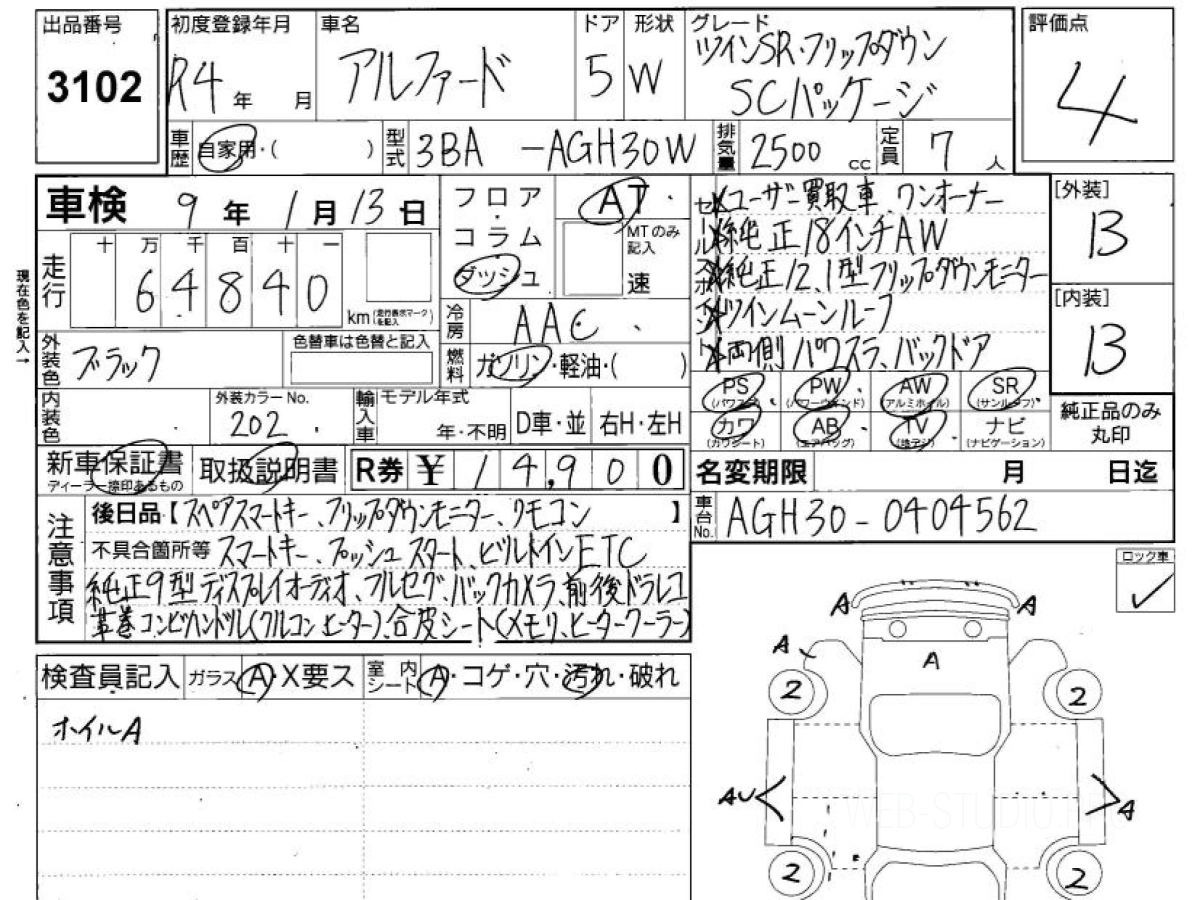 出品番号
3102
初度登録年月
R4 年 月
車名
アルファード
ドア
5
形状
W
グレード
ツインSR・フリップダウン
SCパッケージ
評価点
4
車歴
自家用・( )
型式
3BA -AGH30W
排気量
2500 cc
定員
7 人
車検 9年 1月 13日
フロア・コラム
ダッシュ
AT
MTのみ記入
速
セールスポイント
ユーザー買取車、ワンオーナー
純正18インチAW
純正12.1型フリップダウンモニター
ツインムーンルーフ
両側パワスラ、バックドア
[外装]
B
[内装]
B
現在色を記入→
走行
十 万 千 百 十 一
6 4 8 4 0
km (走行表示マークを記入)
冷房
AAC
燃料
ガソリン・軽油・( )
外装色
ブラック
色替車は色替と記入
内装色
外装カラーNo.
202
輸入車
モデル年式
年・不明
D車・並
右H・左H
PS
(パワステ)
PW
(パワーウインド)
AW
(アルミホイル)
SR
(サンルーフ)
カワ
(カワシート)
AB
(エアバッグ)
TV
(地デジ)
ナビ
(ナビゲーション)
純正品のみ
丸印
新車保証書
ディーラー捺印あるもの
取扱説明書
R券 ¥ 14,900
名変期限 月 日迄
車台No.
AGH30-0404562
注意事項
後日品【スペアスマートキー、フリップダウンモニター、リモコン】
不具合箇所等 スマートキー、プッシュスタート、ビルトインETC
純正9型ディスプレイオーディオ、フルセグ、バックカメラ、前後ドラレコ
革巻コンビハンドル(クルコン、ヒーター)、合皮シート(メモリ、ヒータークーラー)
ロック車
✓
検査員記入
ガラス A・X要ス
室内シート A・コゲ・穴・汚れ・破れ
ホイルA
A
A
A
A
2
2
AU
A
2
2
WEB-STUDIO